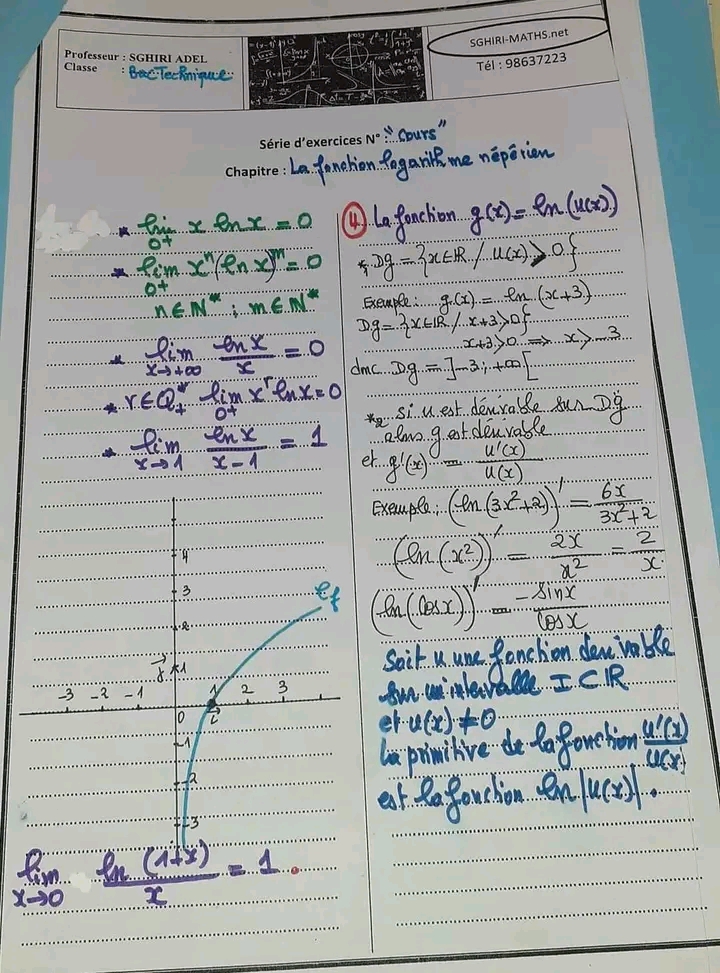 Professeur : SGHIRI ADEL
Classe : Bac Technique
SGHIRI-MATHS.net
Tél : 98637223
Série d'exercices N° : "Cours"
Chapitre : La fonction logarithme népérien
* lim x ln x = 0
0+
* lim x^n (ln x)^m = 0
0+
n ∈ IN* ; m ∈ IN*
* lim ln x / x = 0
x→+∞
* r ∈ Q*+ lim x^r ln x = 0
0+
* lim ln x / x-1 = 1
x→1
4
3
2
1
j
-3 -2 -1 0 1 2 3
i
-1
-2
-3
Cf
lim ln (1+x) / x = 1.
x→0
4. La fonction g(x) = ln (u(x))
* Dg = {x ∈ IR / u(x) > 0}
Exemple : g(x) = ln (x+3)
Dg = {x ∈ IR / x+3 > 0}
x+3 > 0 ⟹ x > -3
donc Dg = ]-3 ; +∞[
* si u est dérivable sur Dg
alors g est dérivable
et g'(x) = u'(x) / u(x)
Exemple : (ln (3x²+2))' = 6x / 3x²+2
(ln (x²))' = 2x / x² = 2 / x
(ln (cos x))' = -sin x / cos x
Soit u une fonction derivable
sur un intervalle I ⊂ IR
et u(x) ≠ 0
la primitive de la fonction u'(x) / u(x)
est la fonction ln |u(x)|.